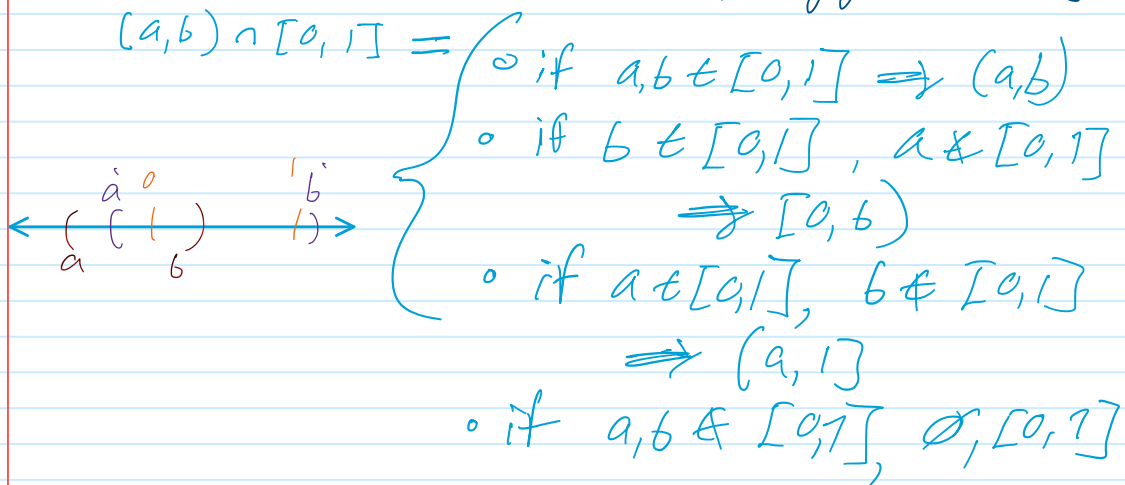 (a,b) ∩ [0,1] =
∘ if a,b ∈ [0,1] ⇒ (a,b)
∘ if b ∈ [0,1], a ∉ [0,1]
⇒ [0,b)
∘ if a ∈ [0,1], b ∉ [0,1]
⇒ (a,1]
∘ if a,b ∉ [0,1], ∅, [0,1]
a 0 1 b
( ( | ) | )
a b